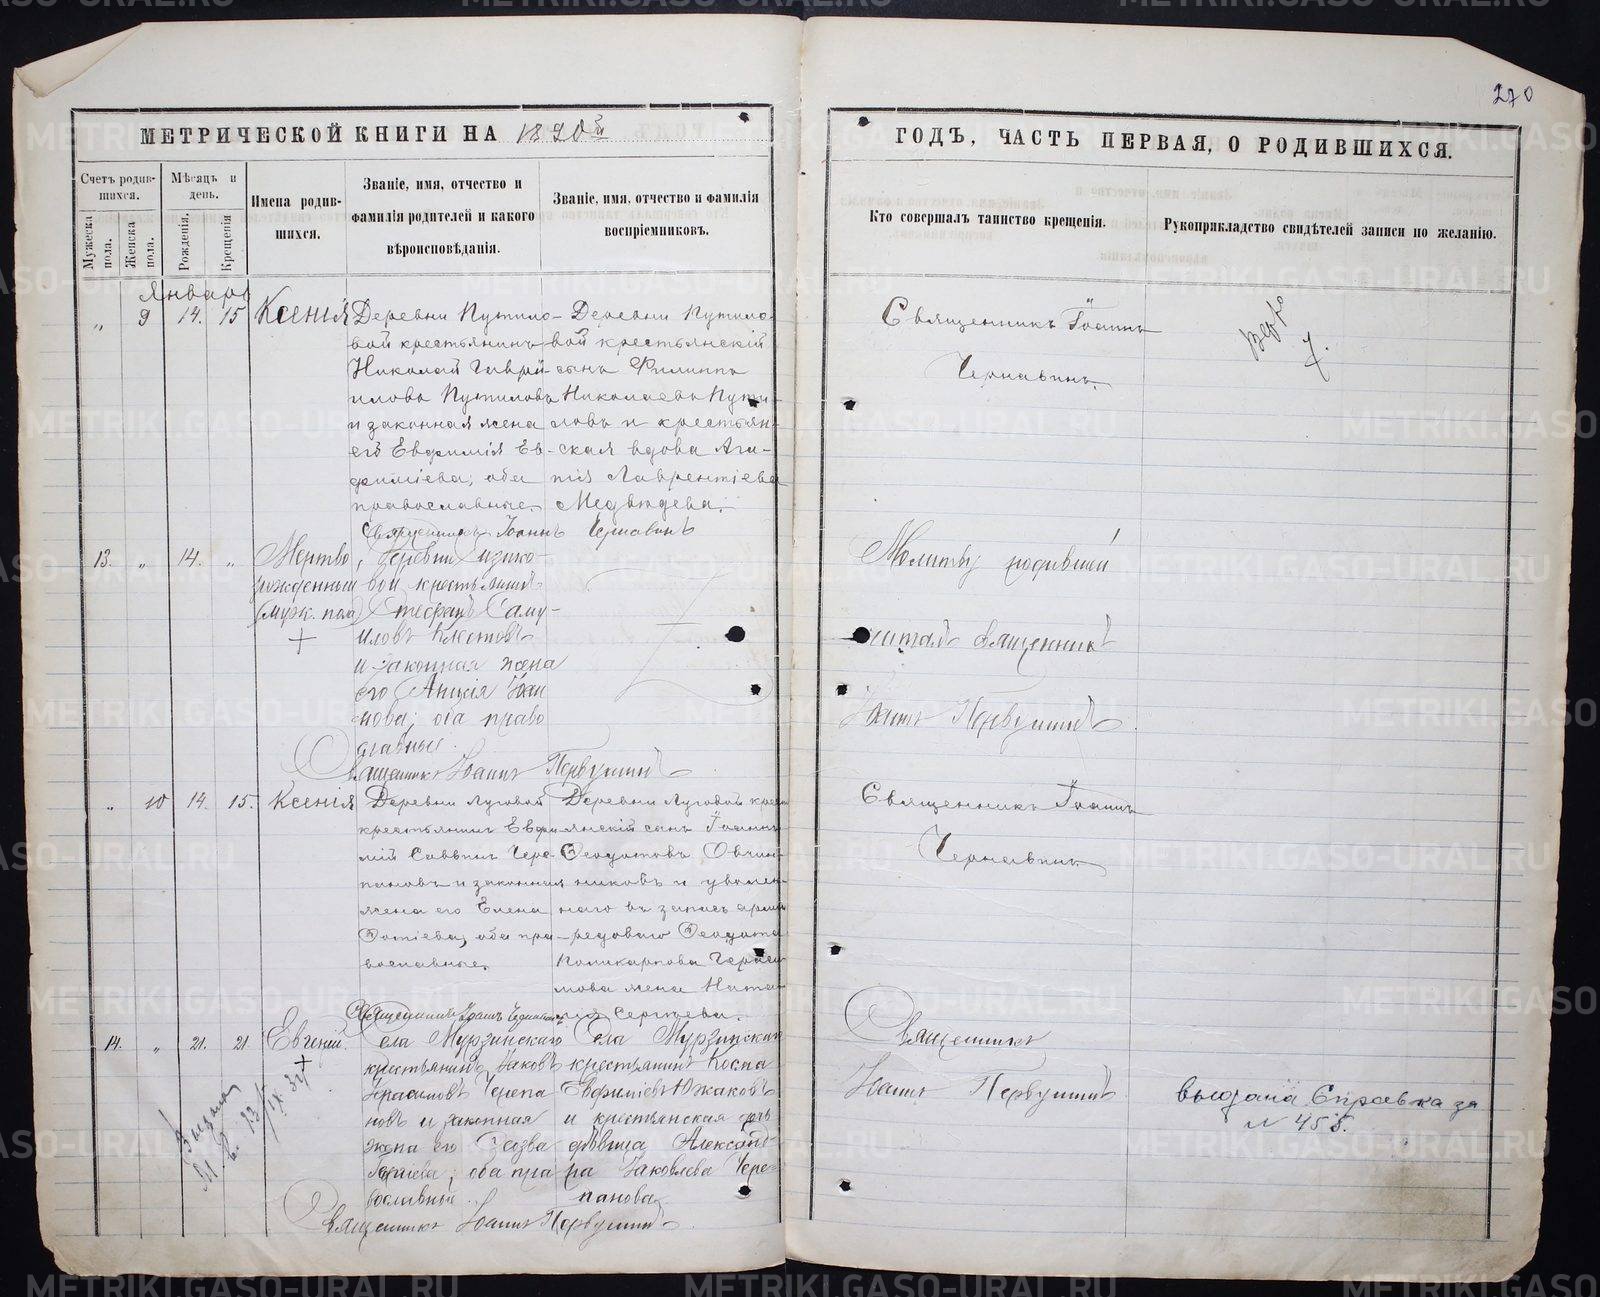 270
МЕТРИЧЕСКОЙ КНИГИ НА 1890й
ГОДЪ, ЧАСТЬ ПЕРВАЯ, О РОДИВШИХСЯ.
Счетъ родив-
шихся.
Мужеска пола.
Женска пола.
Мѣсяцъ и день.
Рожденія.
Крещенія
Имена родив-
шихся.
Званіе, имя, отчество и
фамилія родителей и какого
вѣроисповѣданія.
Званіе, имя, отчество и фамилія
воспріемниковъ.
Кто совершалъ таинство крещенія.
Рукоприкладство свидѣтелей записи по желанію.
Январь
„ 9 14. 15 Ксенія
Деревни Путило-
вой крестьянинъ
Николай Гаврі-
иловъ Путиловъ
и законная жена
его Евфимія Ев-
фиміева, оба
православные.
Деревни Путило-
вой крестьянскій
сынъ Филиппъ
Николаевъ Пути-
ловъ и крестьян-
ская вдова Ага-
пія Лаврентіева
Медвѣдева.
Священникъ Іоаннъ Чернавинъ
Священникъ Іоаннъ
Чернавинъ.
13. „ 14. „ Мертво
рожденный
(муж. пола)
+
Деревни
вой крестьянинъ
Стефанъ Саму-
иловъ
и законная жена
его Іоан
нова; оба право
славные.
Священникъ Іоаннъ Первушинъ
Молитву родившей
читалъ священникъ
Іоаннъ Первушинъ
„ 10 14. 15. Ксенія
Деревни Луговой
крестьянинъ Евфи-
мій Саввинъ Чере-
пановъ и законная
жена его Елена
Ѳотіева, оба пра-
вославные.
Деревни Луговой крест
янскій сынъ Іоаннъ
Ѳеодотовъ Овчин-
никовъ и уволен-
наго въ запасъ арміи
рядоваго Ѳеодота
Поликарпова Гераси
мова жена Ната-
лія Сергѣева.
Священникъ Іоаннъ Чернавинъ
Священникъ Іоаннъ
Чернавинъ
14. „ 21. 21 Евгеній.
+
Села Мурзинскаго
крестьянинъ Іаковъ
Герасимовъ Черепа
новъ и законная
жена его
оба пра
вославные.
Села Мурзинскаго
крестьянинъ Косма
Евфиміевъ Южаковъ
и крестьянская дочь
дѣвица Александ-
ра Іаковлева Чере-
панова
Священникъ Іоаннъ Первушинъ
Священникъ
Іоаннъ Первушинъ
выдана справка за
№ 455.